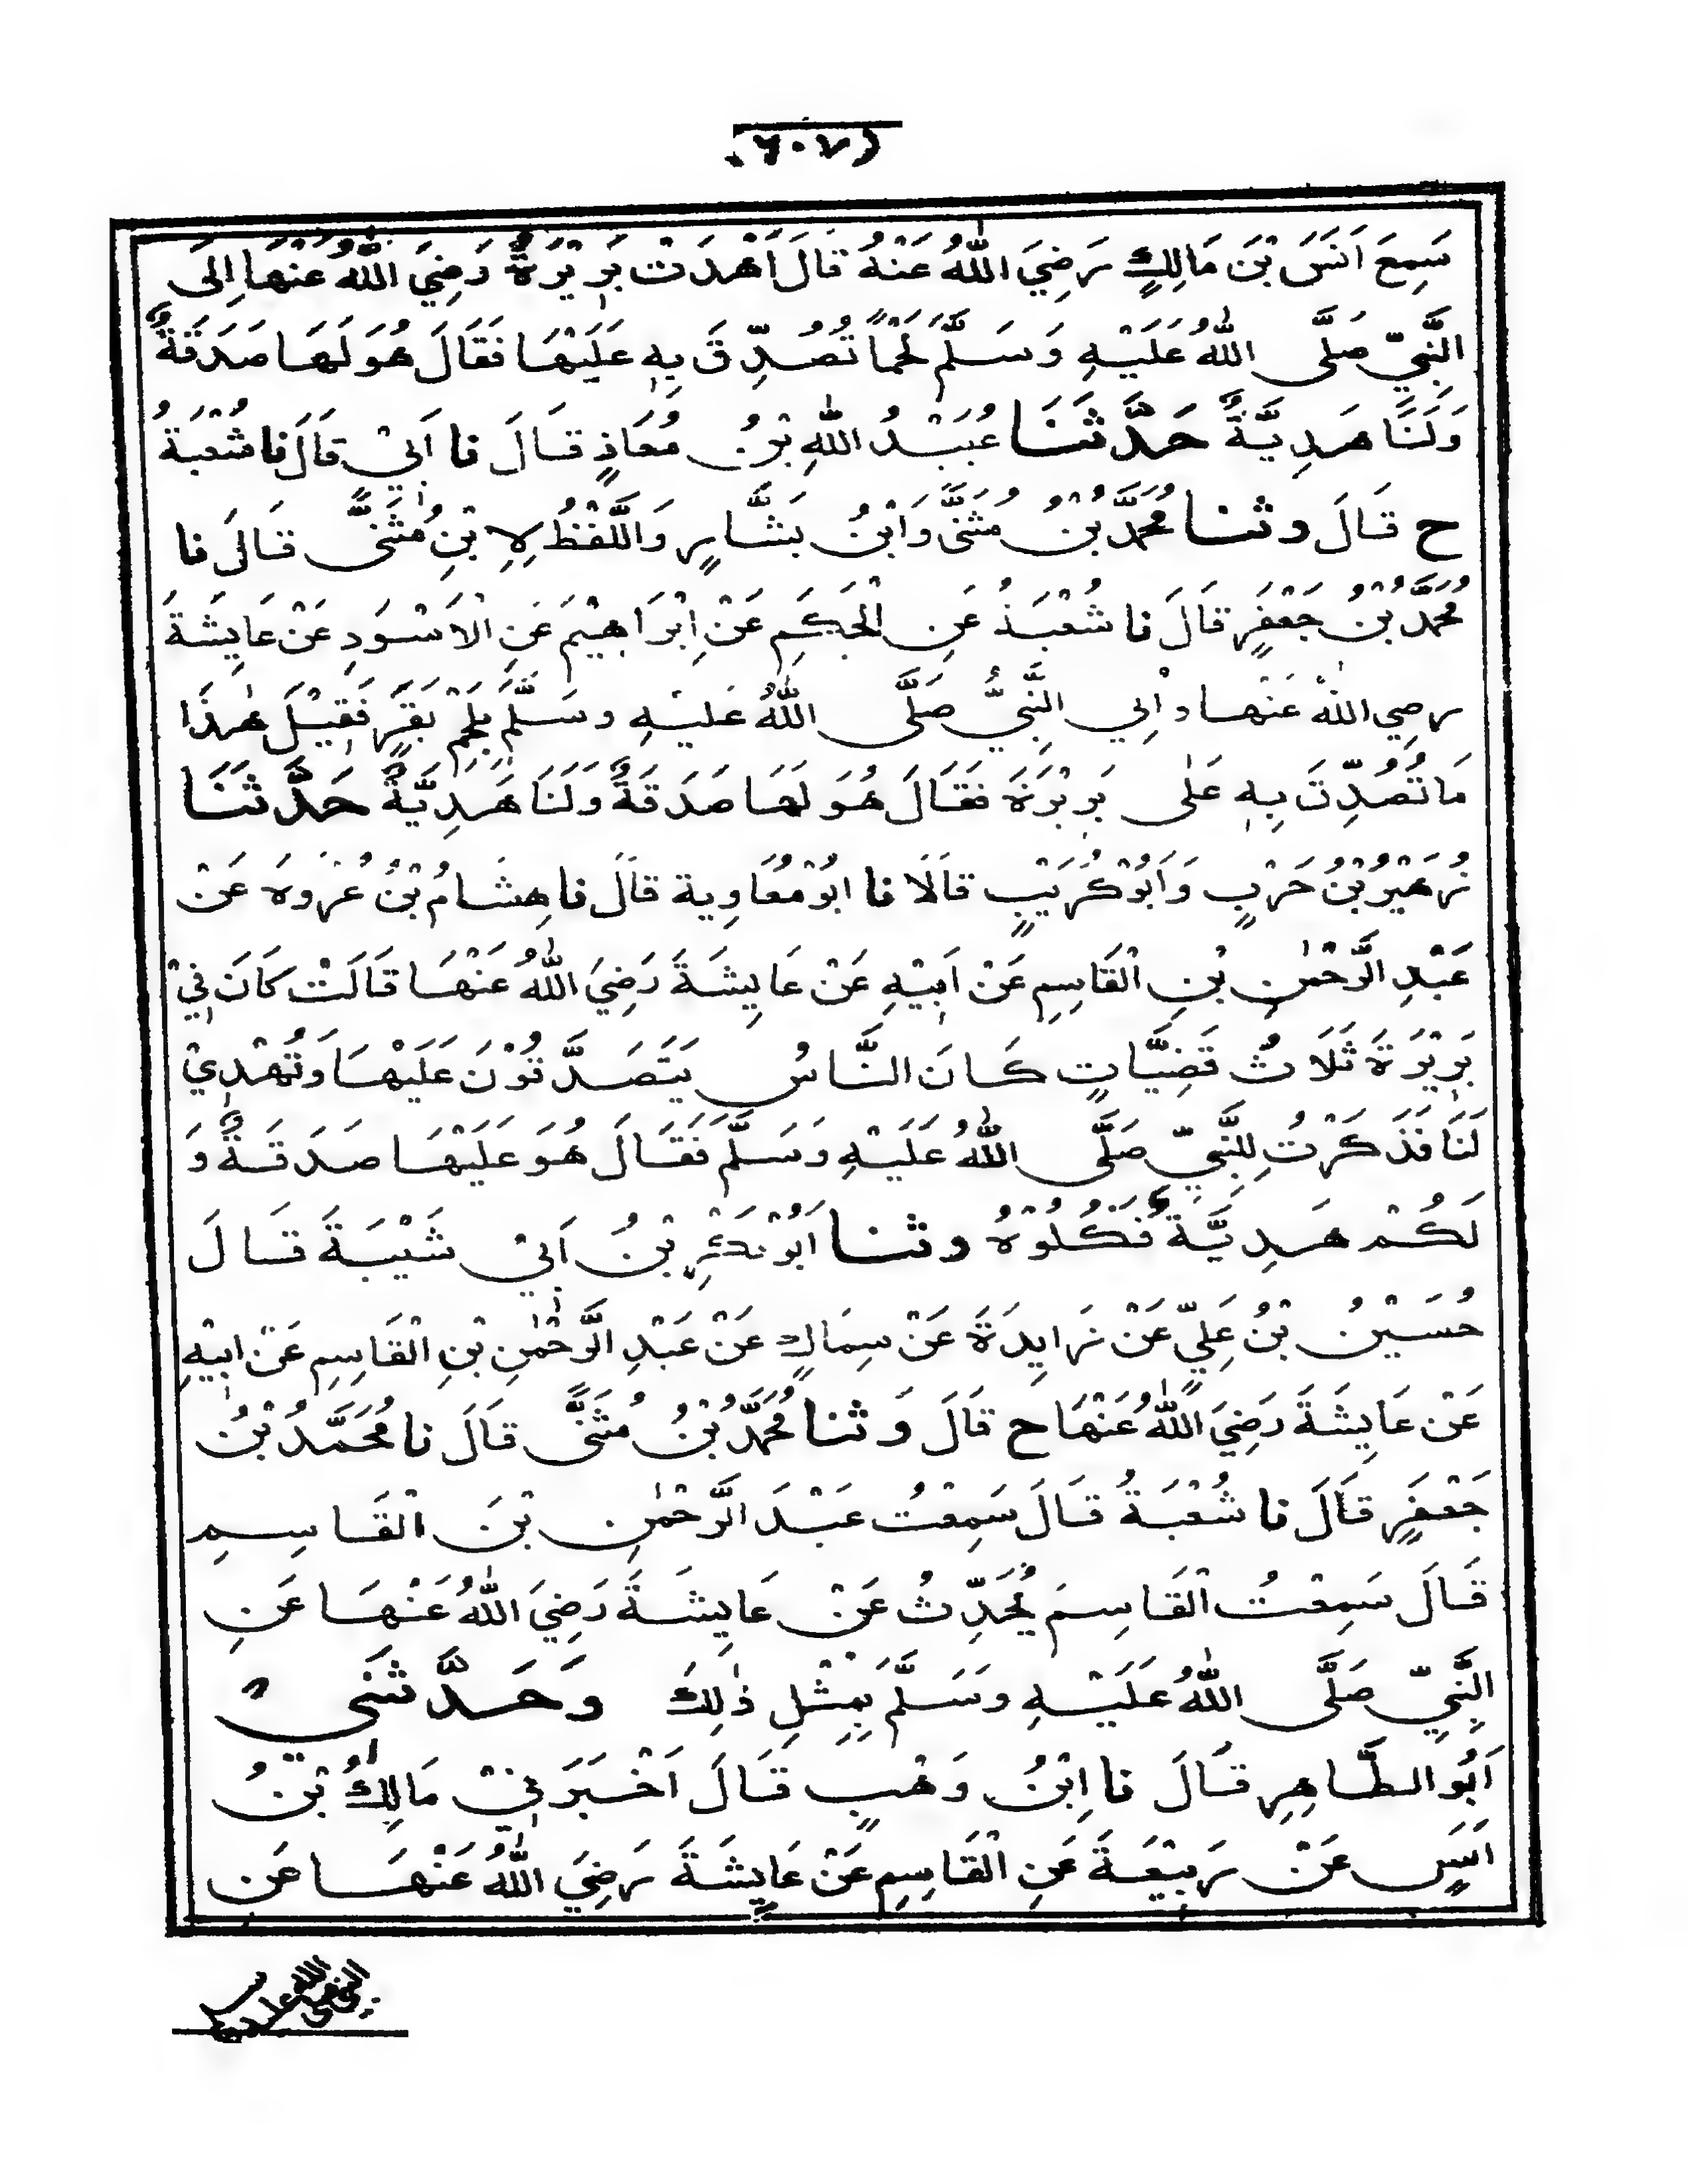 (٦٠٧)
سَمِعَ اَنَسَ بْنَ مَالِكٍ رَضِيَ اللّٰهُ عَنْهُ قَالَ اَهْدَتْ بَرِيْرَةُ رَضِيَ اللّٰهُ عَنْهَا اِلَى
النَّبِيِّ صَلَّى اللّٰهُ عَلَيْهِ وَسَلَّمَ لَحْمًا تُصُدِّقَ بِهٖ عَلَيْهَا فَقَالَ هُوَ لَهَا صَدَقَةٌ
وَلَنَا هَدِيَّةٌ حَدَّثَنَا عُبَيْدُ اللّٰهِ بْنُ مُعَاذٍ قَالَ نا اَبِيْ قَالَ نا شُعْبَةُ
ح قَالَ وثنا مُحَمَّدُ بْنُ مُثَنَّى وَابْنُ بَشَّارٍ وَاللَّفْظُ لِاِبْنِ مُثَنَّى قَالَ نا
مُحَمَّدُ بْنُ جَعْفَرٍ قَالَ نا شُعْبَةُ عَنِ الْحَكَمِ عَنْ اِبْرَاهِيْمَ عَنِ الْاَسْوَدِ عَنْ عَايِشَةَ
رضي اللّٰهُ عَنْهَا واُتِي النَّبِيُّ صَلَّى اللّٰهُ عَلَيْهِ وسَلَّمَ بِلَحْمِ بَقَرٍ فَقِيْلَ هٰذَا
مَا تُصُدِّقَ بِهٖ عَلٰى بَرِيْرَةَ فَقَالَ هُوَ لَهَا صَدَقَةٌ وَلَنَا هَدِيَّةٌ حَدَّثَنَا
زُهَيْرُ بْنُ حَرْبٍ وَاَبُوْ كُرَيْبٍ قَالَا نا اَبُوْ مُعَاوِية قَالَ نا هِشَامُ بْنُ عُرْوَةَ عَنْ
عَبْدِ الرَّحْمٰنِ بْنِ الْقَاسِمِ عَنْ اَبِيْهِ عَنْ عَايِشَةَ رَضِيَ اللّٰهُ عَنْهَا قَالَتْ كَانَ فِيْ
بَرِيْرَةَ ثَلَاثُ قَضِيَّاتٍ كَانَ النَّاسُ يَتَصَدَّقُوْنَ عَلَيْهَا وَتُهْدِيْ
لَنَا فَذَكَرْتُ لِلنَّبِيِّ صَلَّى اللّٰهُ عَلَيْهِ وَسَلَّمَ فَقَالَ هُوَ عَلَيْهَا صَدَقَةٌ وَ
لَكُمْ هَدِيَّةٌ فَكُلُوْهُ وثنا اَبُوْ بَكْرِ بْنُ اَبِيْ شَيْبَةَ قَالَ
حُسَيْنُ بْنُ عَلِيٍّ عَنْ زَايِدَةَ عَنْ سِمَاكٍ عَنْ عَبْدِ الرَّحْمٰنِ بْنِ الْقَاسِمِ عَنْ اَبِيْهِ
عَنْ عَايِشَةَ رَضِيَ اللّٰهُ عَنْهَا ح قَالَ وَثنا مُحَمَّدُ بْنُ مُثَنَّى قَالَ نا مُحَمَّدُ بْنُ
جَعْفَرٍ قَالَ نا شُعْبَةُ قَالَ سَمِعْتُ عَبْدَ الرَّحْمٰنِ بْنَ الْقَاسِمِ
قَالَ سَمِعْتُ الْقَاسِمَ يُحَدِّثُ عَنْ عَايِشَةَ رَضِيَ اللّٰهُ عَنْهَا عَنِ
النَّبِيِّ صَلَّى اللّٰهُ عَلَيْهِ وسَلَّمَ بِمِثْلِ ذٰلِكَ وَحَدَّثَنِي
اَبُو الطَّاهِرِ قَالَ نا اِبْنُ وَهْبٍ قَالَ اَخْبَرَنِيْ مَالِكُ بْنُ
اَنَسٍ عَنْ رَبِيْعَةَ عَنِ الْقَاسِمِ عَنْ عَايِشَةَ رَضِيَ اللّٰهُ عَنْهَا عَنِ
النبي صلى الله عليه وسلم